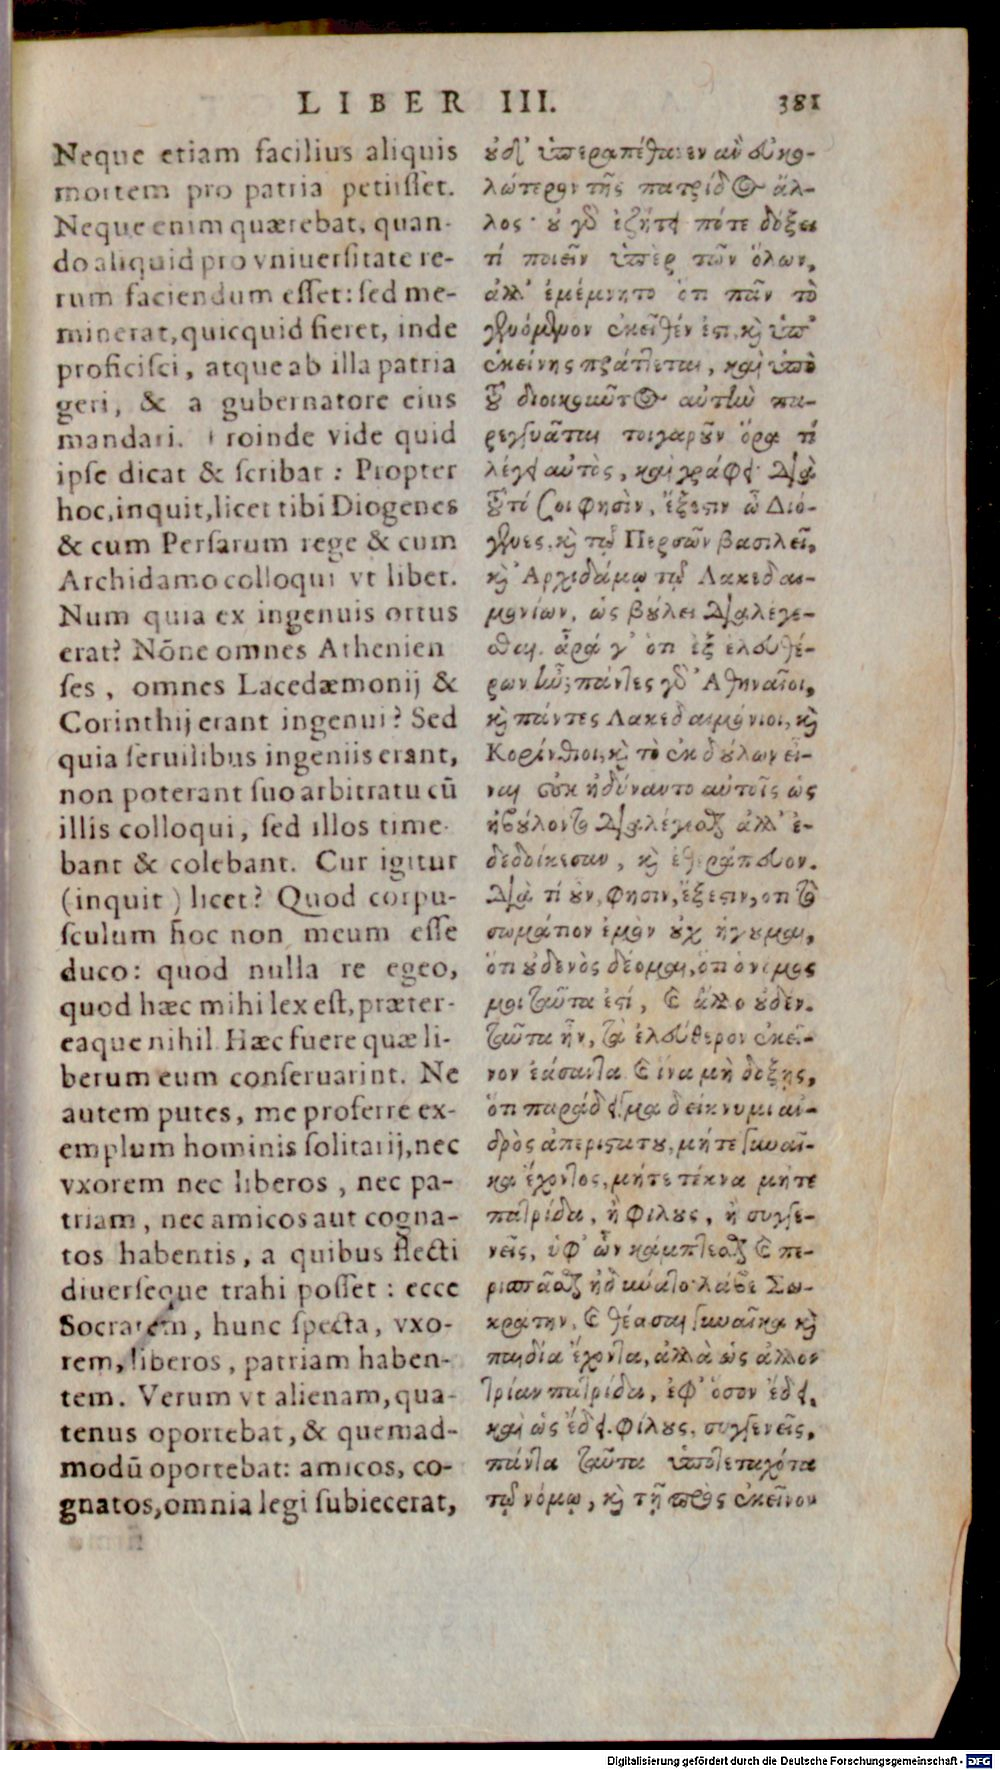 LIBER III. 381
Neque etiam facilius aliquis
mortem pro patria petiisset.
Neque enim quærebat, quan-
do aliquid pro vniuersitate re-
rum faciendum esset: sed me-
minerat, quicquid fieret, inde
proficisci, atque ab illa patria
geri, & a gubernatore eius
mandari. roinde vide quid
ipse dicat & scribat: Propter
hoc, inquit, licet tibi Diogenes
& cum Persarum rege & cum
Archidamo colloqui vt libet.
Num quia ex ingenuis ortus
erat? Nōne omnes Athenien
ses, omnes Lacedæmonij &
Corinthij erant ingenui? Sed
quia seruilibus ingeniis erant,
non poterant suo arbitratu cū
illis colloqui, sed illos time-
bant & colebant. Cur igitur
(inquit) licet? Quod corpu-
sculum hoc non meum esse
duco: quod nulla re egeo,
quod hæc mihi lex est, præter-
eaque nihil. Hæc fuere quæ li-
berum eum conseruarint. Ne
autem putes, me proferre ex-
emplum hominis solitarij, nec
vxorem nec liberos, nec pa-
triam, nec amicos aut cogna-
tos habentis, a quibus flecti
diuerseque trahi posset: ecce
Socratem, hunc specta, vxo-
rem, liberos, patriam haben-
tem. Verum vt alienam, qua-
tenus oportebat, & quemad-
modū oportebat: amicos, co-
gnatos, omnia legi subiecerat,
οὐδ' ὑπεραπέθανεν ἂν εὐκο-
λώτερον τῆς πατρίδος ἄλ-
λος· οὐ γὰρ ἐζήτει πότε δόξει
τί ποιεῖν ὑπὲρ τῶν ὅλων,
ἀλλ' ἐμέμνητο ὅτι πᾶν τὸ
γενόμενον ἐκεῖθέν ἐστι, καὶ ὑπ'
ἐκείνης πράττεται, καὶ ὑπὸ
τοῦ διοικοῦντος αὐτὴν πα-
ρεγγυᾶται τοιγαροῦν ὅρα τί
λέγει αὐτὸς, καὶ γράφει· Διὰ
τοῦτό σοι φησὶν, ἔξεστιν ὦ Διό-
γενες, καὶ τῷ Περσῶν βασιλεῖ,
καὶ Ἀρχιδάμῳ τῷ Λακεδαι-
μονίων, ὡς βούλει διαλέγε-
σθαι. ἆρά γ' ὅτι ἐξ ἐλευθέ-
ρων ἦν; πάντες γὰρ Ἀθηναῖοι,
καὶ πάντες Λακεδαιμόνιοι, καὶ
Κορίνθιοι, καὶ τὸ ἐκ δούλων εἶ-
ναι οὐκ ἠδύναντο αὐτοῖς ὡς
ἠβούλοντο διαλέγεσθαι ἀλλ' ἐ-
δεδοίκεσαν, καὶ ἐθεράπευον.
Διὰ τί οὖν, φησιν, ἔξεστιν, ὅτι τὸ
σωμάτιον ἐμὸν οὐχ ἡγοῦμαι,
ὅτι οὐδενὸς δέομαι, ὅτι ὁ νόμος
μοι ταῦτα ἐστί, καὶ ἄλλο οὐδέν.
ταῦτα ἦν, τὰ ἐλεύθερον ἐκεῖ-
νον ἐάσαντα καὶ ἵνα μὴ δόξῃς,
ὅτι παράδειγμα δείκνυμι ἀν-
δρὸς ἀπεριστάτου, μήτε γυναῖ-
κα ἔχοντος, μήτε τέκνα μήτε
πατρίδα, ἢ φίλους, ἢ συγγε-
νεῖς, ὑφ' ὧν κάμπτεσθαι καὶ πε-
ρισπᾶσθαι ἠδύνατο· λάβε Σω-
κράτην, καὶ θέασαι γυναῖκα καὶ
παιδία ἔχοντα, ἀλλὰ ὡς ἀλλο-
τρίαν πατρίδα, ἐφ' ὅσον ἔδει,
καὶ ὡς ἔδει. φίλους, συγγενεῖς,
πάντα ταῦτα ὑποτεταχότα
τῷ νόμῳ, καὶ τῇ πρὸς ἐκεῖνον
Digitalisierung gefördert durch die Deutsche Forschungsgemeinschaft - DFG